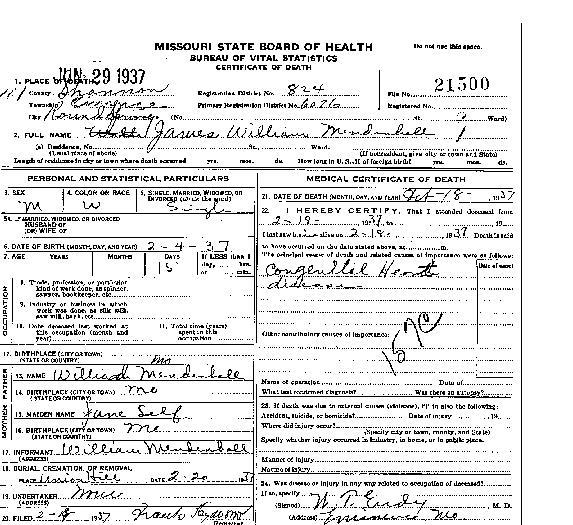 MISSOURI STATE BOARD OF HEALTH
Do not use this space.
BUREAU OF VITAL STATISTICS
CERTIFICATE OF DEATH
JUN 29 1937
1. PLACE OF DEATH
County Shannon Registration District No. 824 File No. 21500
Township Primary Registration District No. 6026 Registered No.
City Round Spring (No. St. Ward)
2. FULL NAME James William Mendenhall
(a) Residence, No. St. Ward.
(Usual place of abode) (If nonresident, give city or town and State)
Length of residence in city or town where death occurred yrs. mos. ds. How long in U. S., if of foreign birth? yrs. mos. ds.
PERSONAL AND STATISTICAL PARTICULARS
3. SEX 4. COLOR OR RACE 5. SINGLE, MARRIED, WIDOWED, OR DIVORCED (write the word)
M W Single
5a. IF MARRIED, WIDOWED, OR DIVORCED
HUSBAND OF
(OR) WIFE OF
6. DATE OF BIRTH (MONTH, DAY, AND YEAR) 2-4-37
7. AGE YEARS MONTHS DAYS If LESS than 1 day, hrs. or min.
OCCUPATION
8. Trade, profession, or particular kind of work done, as spinner, sawyer, bookkeeper, etc.
9. Industry or business in which work was done, as silk mill, saw mill, bank, etc.
10. Date deceased last worked at this occupation (month and year)
11. Total time (years) spent in this occupation
12. BIRTHPLACE (CITY OR TOWN) Mo
(STATE OR COUNTRY)
FATHER
13. NAME William Mendenhall
14. BIRTHPLACE (CITY OR TOWN) Mo
(STATE OR COUNTRY)
MOTHER
15. MAIDEN NAME Jane Self
16. BIRTHPLACE (CITY OR TOWN) Mo
(STATE OR COUNTRY)
17. INFORMANT William Mendenhall
(ADDRESS)
18. BURIAL, CREMATION, OR REMOVAL
PLACE Hill DATE 2-20 1937
19. UNDERTAKER
(ADDRESS)
20. FILED 1937 Frank
MEDICAL CERTIFICATE OF DEATH
21. DATE OF DEATH (MONTH, DAY, AND YEAR) 18-, 1937
22. I HEREBY CERTIFY, That I attended deceased from
2-18- 1937, to , 19
I last saw alive on 2-18-, 1937 Death is said
to have occurred on the date stated above, at m.
The principal cause of death and related causes of importance were as follows:
Date of onset
Congenital Heart
disease
Other contributory causes of importance:
Name of operation Date of
What test confirmed diagnosis? Was there an autopsy?
23. If death was due to external causes (violence), fill in also the following:
Accident, suicide, or homicide? Date of injury , 19
Where did injury occur?
(Specify city or town, county, and State)
Specify whether injury occurred in industry, in home, or in public place.
Manner of injury
Nature of injury
24. Was disease or injury in any way related to occupation of deceased?
If so, specify
(Signed) W. T. Eudy, M. D.
(Address) Eminence Mo